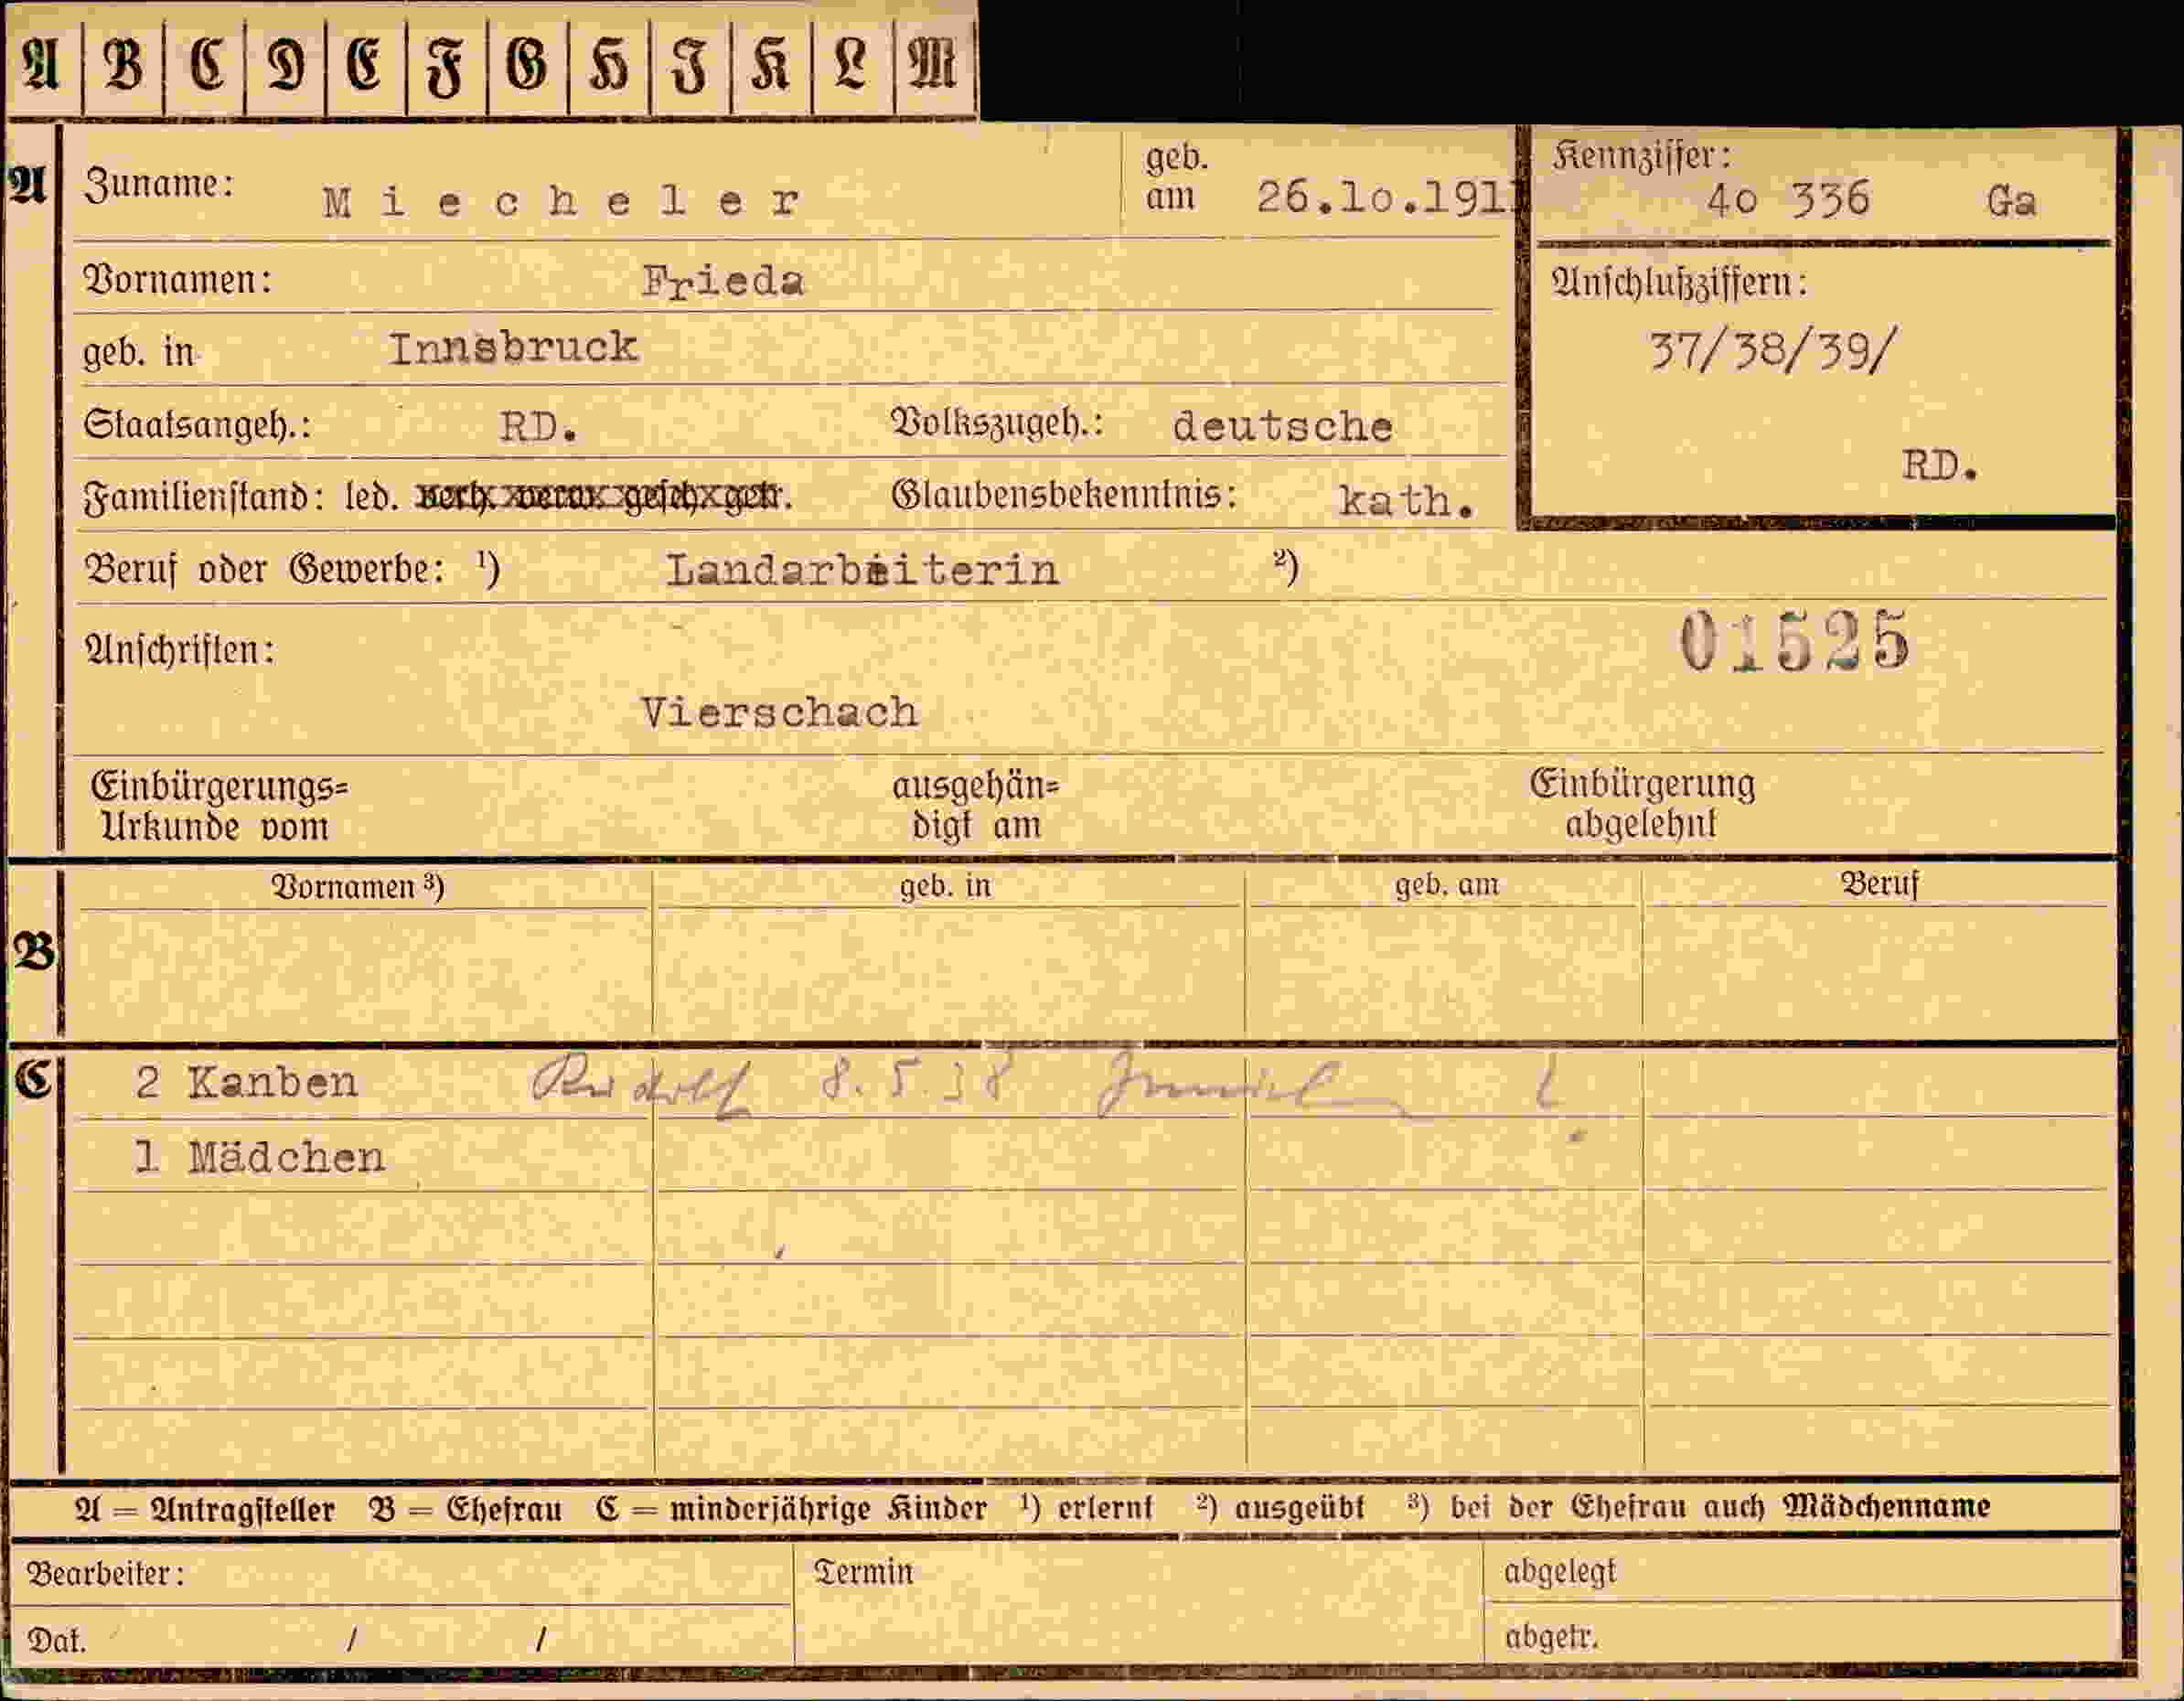 A B C D E F G H J K L M
A Zuname: Miecheler geb. am 26.10.191 Kennziffer: 40 336 Ga
Vornamen: Frieda Anschlußziffern:
geb. in Innsbruck 37/38/39/
Staatsangeh.: RD. Volkszugeh.: deutsche RD.
Familienstand: led. verh. verw. gesch. getr. Glaubensbekenntnis: kath.
Beruf oder Gewerbe: ¹) Landarbeiterin ²)
Anschriften: 01525
Vierschach
Einbürgerungs= ausgehän= Einbürgerung
Urkunde vom digt am abgelehnt
B Vornamen ³) geb. in geb. am Beruf
C 2 Kanben Rudolf 8.5.38 ?
1 Mädchen
A = Antragsteller B = Ehefrau C = minderjährige Kinder ¹) erlernt ²) ausgeübt ³) bei der Ehefrau auch Mädchenname
Bearbeiter: Termin abgelegt
Dat. / / abgetr.